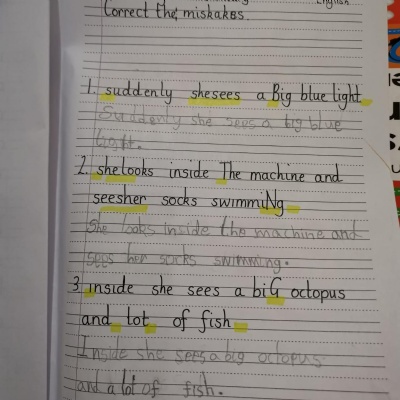 English
Correct the mistakes.
1. suddenly shesees a Big blue light
Suddenly she sees a big blue
light.
2. shelooks inside The machine and
seesher socks swimmiNg
She looks inside the machine and
sees her socks swimming.
3 inside she sees a biG octopus
and lot of fish
Inside she sees a big octopus
and a lot of fish.